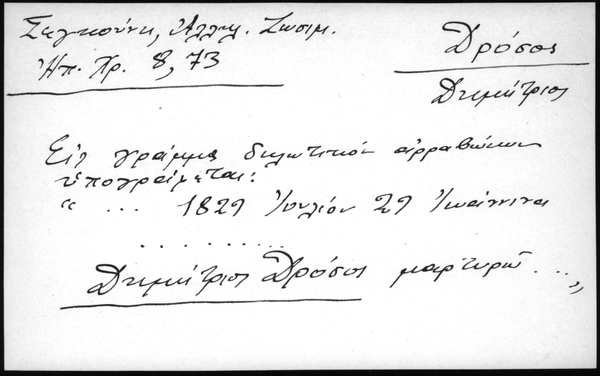 Σαγκούνη, Ἀλληλ. Ζωσιμ.
Ἠπ. Χρ. 8, 73
Δρόσος
Δημήτριος
Εἰς γράμμα δηλωτικόν ἀρραβώνων
ὑπογράφεται:
“ ... 1829 Ἰουλίου 29 Ἰωάννινα
..........
Δημήτριος Δρόσος μαρτυρῶ ... „